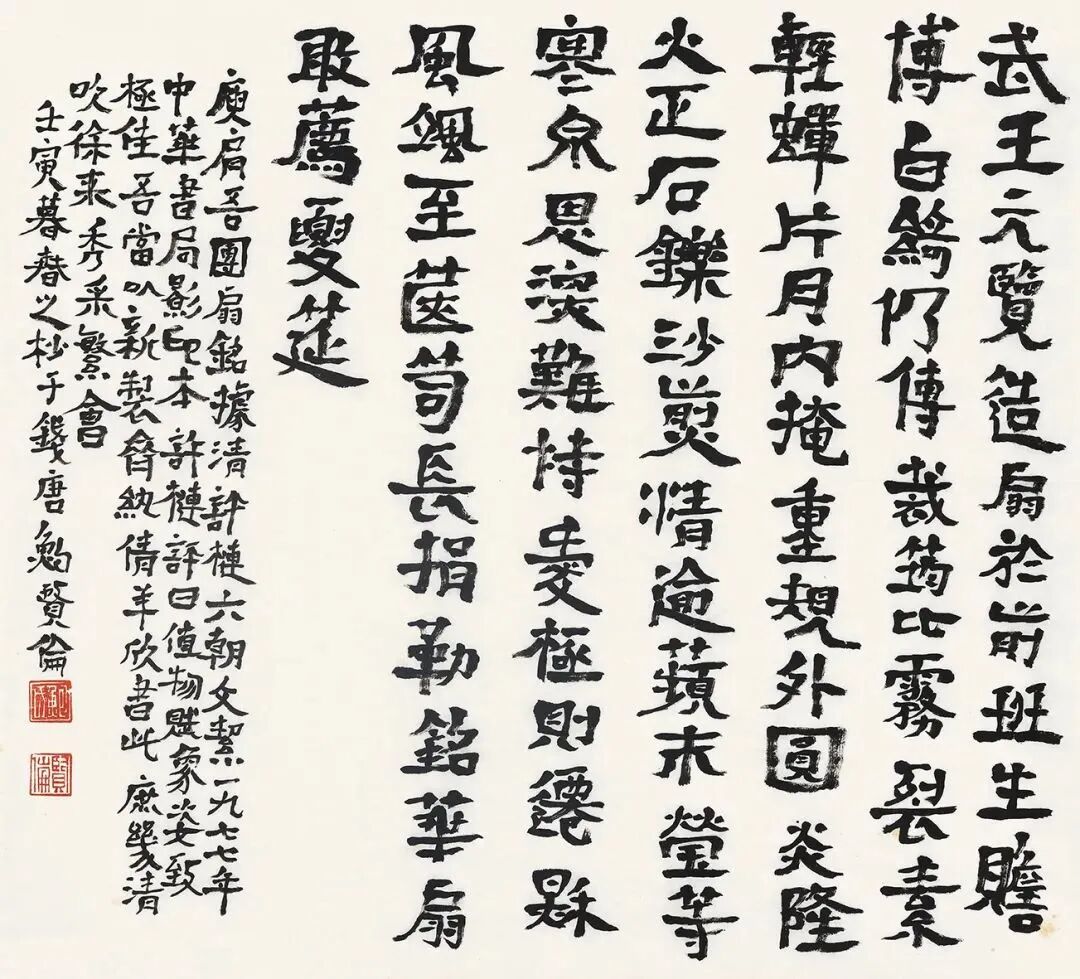 武王元覽造扇於前班生贍
博白綺仍傳裁筠比霧裂素
輕蟬片月內掩重規外圓炎隆
火正石鑠沙煎清逾蘋末瑩等
寒泉恩深難恃愛極則遷秋
風颯至篋笥長捐勒銘華扇
敢薦夏筵
庾肩吾團扇銘據清許槤六朝文絜一九七七年
中華書局影印本許槤評曰值物賦象姿致
極佳吾當以新製齊紈倩羊欣書此庶幾清
吹徐來秀采繁會
壬寅暮春之杪于錢唐鮑賢倫
賢倫